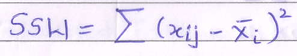 SSW = ∑ (xij - x̄i)²